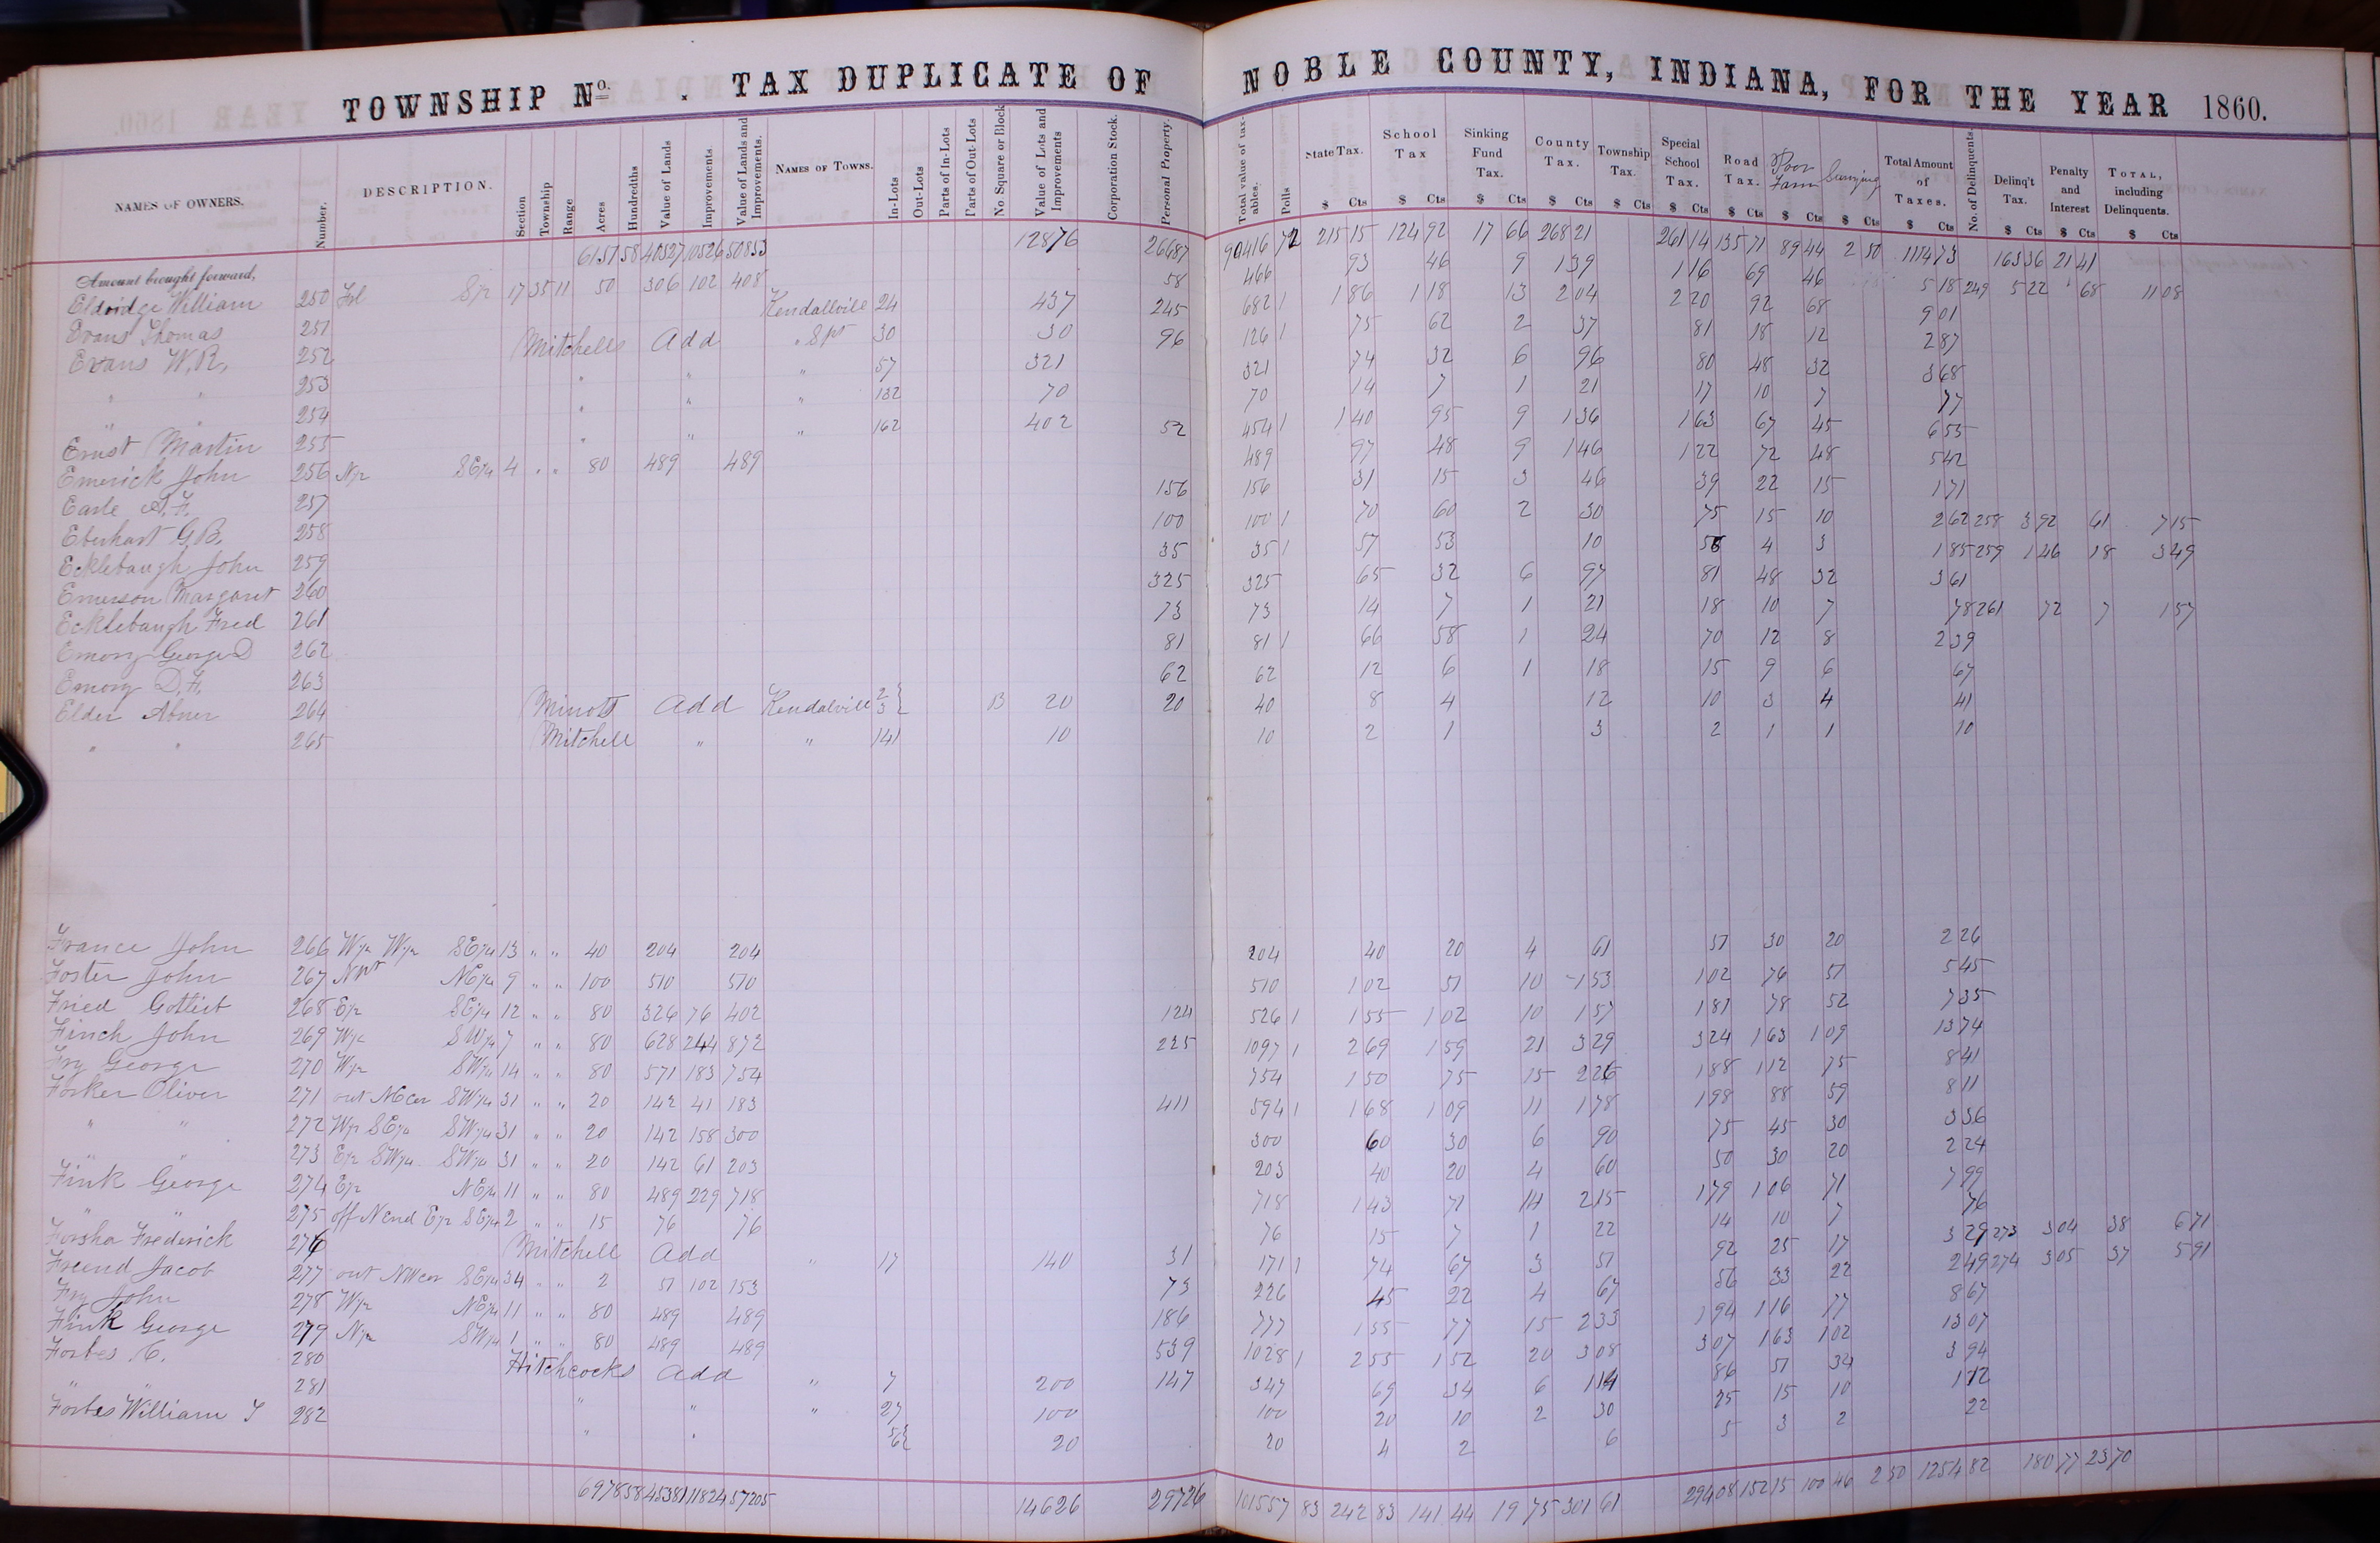 TOWNSHIP No. . TAX DUPLICATE OF NOBLE COUNTY, INDIANA, FOR THE YEAR 1860.
NAMES OF OWNERS. Number. DESCRIPTION. Section Township Range Acres Hundredths Value of Lands Improvements. Value of Lands and Improvements. NAMES OF TOWNS. In-Lots Out-Lots Parts of In-Lots Parts of Out-Lots No Square or Block Value of Lots and Improvements Corporation Stock. Personal Property. Total value of taxables. Polls State Tax. School Tax Sinking Fund Tax. County Tax. Township Tax. Special School Tax. Road Tax. Poor Farm Total Amount of Taxes. No. of Delinquents. Delinq't Tax. Penalty and Interest TOTAL, including Delinquents.
$ Cts $ Cts $ Cts $ Cts $ Cts $ Cts $ Cts $ Cts $ Cts $ Cts $ Cts $ Cts $ Cts
Amount brought forward, 6157 58 40527 10526 50853 12876 26687 90416 72 215 15 124 92 17 66 268 21 261 14 135 71 89 44 2 50 1114 73 163 36 21 41
Eldridge William 250 17 35 11 50 306 102 408 58 466 93 46 9 1 39 1 16 69 46 5 18 249 5 22 68 11 08
Evans Thomas 251 Kendallville 24 437 245 682 1 1 86 1 18 13 2 04 2 20 92 68 9 01
Evans W.R. 252 Mitchells Add " Spt 30 30 96 126 1 75 62 2 37 81 18 12 2 87
" " 253 " " " 57 321 321 74 32 6 96 80 48 32 3 68
" " 254 " " " 132 70 70 14 7 1 21 17 10 7 77
Ernst Martin 255 " " " 162 402 52 454 1 1 40 95 9 1 36 1 63 67 45 6 55
Emerick John 256 N½ SE¼ 4 " " 80 489 489 489 97 48 9 1 46 1 22 72 48 5 42
Earle A.F. 257 156 156 31 15 3 46 39 22 15 1 71
Eberhart G.B. 258 100 100 1 70 60 2 30 75 15 10 2 62 258 3 92 61 7 15
Ecklebaugh John 259 35 35 1 57 53 10 56 4 3 1 85 259 1 46 18 3 49
Emerson Margaret 260 325 325 65 32 6 97 81 48 32 3 61
Ecklebaugh Fred 261 73 73 14 7 1 21 18 10 7 78 261 72 7 1 57
Emory George D 262 81 81 1 66 58 1 24 70 12 8 2 39
Emory D.F. 263 62 62 12 6 1 18 15 9 6 67
Elder Abner 264 Minott Add Kendalville 2 3 B 20 20 40 8 4 12 10 3 4 41
" " 265 Mitchell " " 141 10 10 2 1 3 2 1 1 10
France John 266 W½ W½ SE¼ 13 " " 40 204 204 204 40 20 4 61 51 30 20 2 26
Foster John 267 Npt NE¼ 9 " " 100 510 510 510 1 02 51 10 1 53 1 02 76 51 5 45
Fried Gotliet 268 E½ SE¼ 12 " " 80 326 76 402 124 526 1 1 55 1 02 10 1 57 1 81 78 52 7 35
Finch John 269 W½ SW¼ 7 " " 80 628 244 872 225 1097 1 2 69 1 59 21 3 29 3 24 1 63 1 09 13 74
Fry George 270 W½ SW¼ 14 " " 80 571 183 754 754 1 50 75 15 2 26 1 88 1 12 75 8 41
Forker Oliver 271 out NE cor SW¼ 31 " " 20 142 41 183 411 594 1 1 68 1 09 11 1 78 1 98 88 59 8 11
" " 272 W½ SE¼ SW¼ 31 " " 20 142 158 300 300 60 30 6 90 75 45 30 3 36
" " 273 E½ SW¼ SW¼ 31 " " 20 142 61 203 203 40 20 4 60 50 30 20 2 24
Fink George 274 E½ NE¼ 11 " " 80 489 229 718 718 1 43 71 14 2 15 1 79 1 06 71 7 99
" " 275 off N end E½ SE¼ 2 " " 15 76 76 76 15 7 1 22 14 10 7 76
Forsha Frederick 276 Mitchell Add " 17 140 31 171 1 74 67 3 51 92 25 17 3 29 273 3 04 38 6 71
Freend Jacob 277 out NW cor SE¼ 34 " " 2 51 102 153 73 226 45 22 4 67 56 33 22 2 49 274 3 05 37 5 91
Fry John 278 W½ NE¼ 11 " " 80 489 489 186 777 1 55 77 15 2 33 1 94 1 16 77 8 67
Fink George 279 N½ SW¼ 1 " " 80 489 489 539 1028 1 2 55 1 52 20 3 08 3 07 1 63 1 02 13 07
Forbes C. 280 Hitchcocks Add " 7 200 147 347 69 34 6 1 14 86 51 34 3 94
" " 281 " " " 27 100 100 20 10 2 30 25 15 10 1 12
Forbes William T 282 " " 5 6 20 20 4 2 6 5 3 2 22
6978 58 45381 11824 57205 14626 29726 101557 83 242 83 141 44 19 75 301 61 294 08 152 15 100 46 2 50 1254 82 180 77 23 70